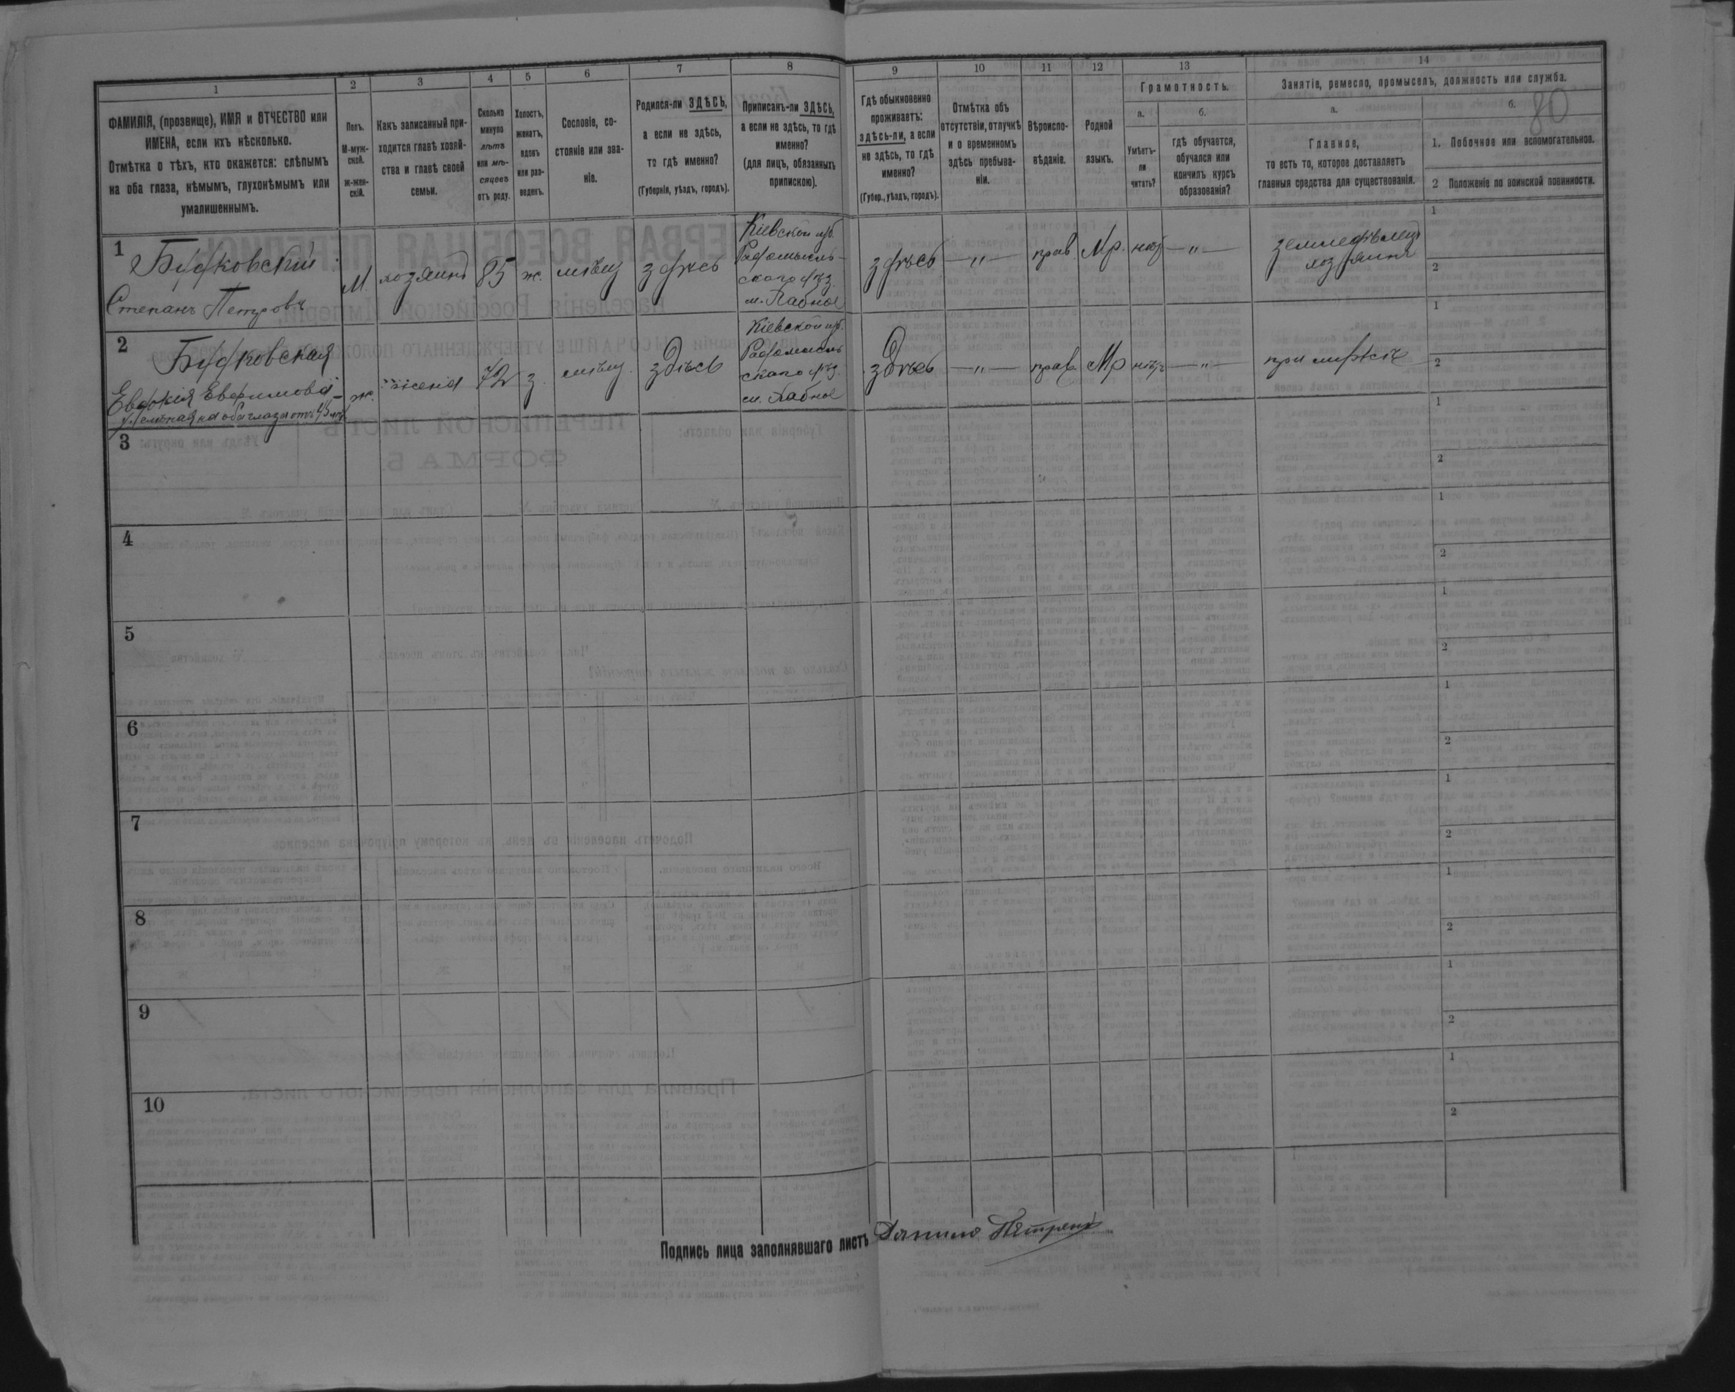 1
2
3
4
5
6
7
8
9
10
11
12
13
14
ФАМИЛІЯ, (прозвище), ИМЯ и ОТЧЕСТВО или
ИМЕНА, если ихъ нѣсколько.
Отмѣтка о тѣхъ, кто окажется: слѣпымъ
на оба глаза, нѣмымъ, глухонѣмымъ или
умалишеннымъ.
Полъ.
М-муж-
ской.
Ж-жен-
скій.
Какъ записанный при-
ходится главѣ хозяй-
ства и главѣ своей
семьи.
Сколько
минуло
лѣтъ
или мѣ-
сяцевъ
отъ роду.
Холостъ,
женатъ,
вдовъ
или раз-
веденъ.
Сословіе, со-
стояніе или зва-
ніе.
Родился-ли ЗДѢСЬ,
а если не здѣсь,
то гдѣ именно?
(Губернія, уѣздъ, городъ).
Приписанъ-ли ЗДѢСЬ,
а если не здѣсь, то гдѣ
именно?
(для лицъ, обязанныхъ
припискою).
Гдѣ обыкновенно
проживаетъ:
здѣсь-ли, а если
не здѣсь, то гдѣ
именно?
(Губер., уѣздъ, городъ).
Отмѣтка объ
отсутствіи, отлучкѣ
и о временномъ
здѣсь пребыва-
ніи.
Вѣроиспо-
вѣданіе.
Родной
языкъ.
Грамотность.
а.
Умѣетъ-
ли
читать?
б.
гдѣ обучается,
обучался или
кончилъ курсъ
образованія?
Занятія, ремесло, промыселъ, должность или служба.
а.
Главное,
то есть то, которое доставляетъ
главныя средства для существованія.
б.
80
1. Побочное или вспомогательное.
2 Положеніе по воинской повинности.
1
Будковскій
Степанъ Петровъ
М
хозяинъ
85
ж.
мѣщ
здѣсь
Кіевской губ.
Радомысль-
скаго уѣз.
м. Хабное
здѣсь
—„—
прав
Мр.
нѣтъ
—„—
земледѣлецъ
хозяинъ
1
2
2
Будковская
Евдокія Ефимова
слѣпая на оба глаза отъ
ж.
жена
72
з.
мѣщ
здѣсь
Кіевской губ.
Радомысль
скаго уѣз.
м. Хабное
здѣсь
—„—
прав
Мр
нѣтъ
—„—
при мужѣ
1
2
3
1
2
4
1
2
5
1
2
6
1
2
7
1
2
8
1
2
9
1
2
10
1
2
Подпись лица заполнявшаго листъ